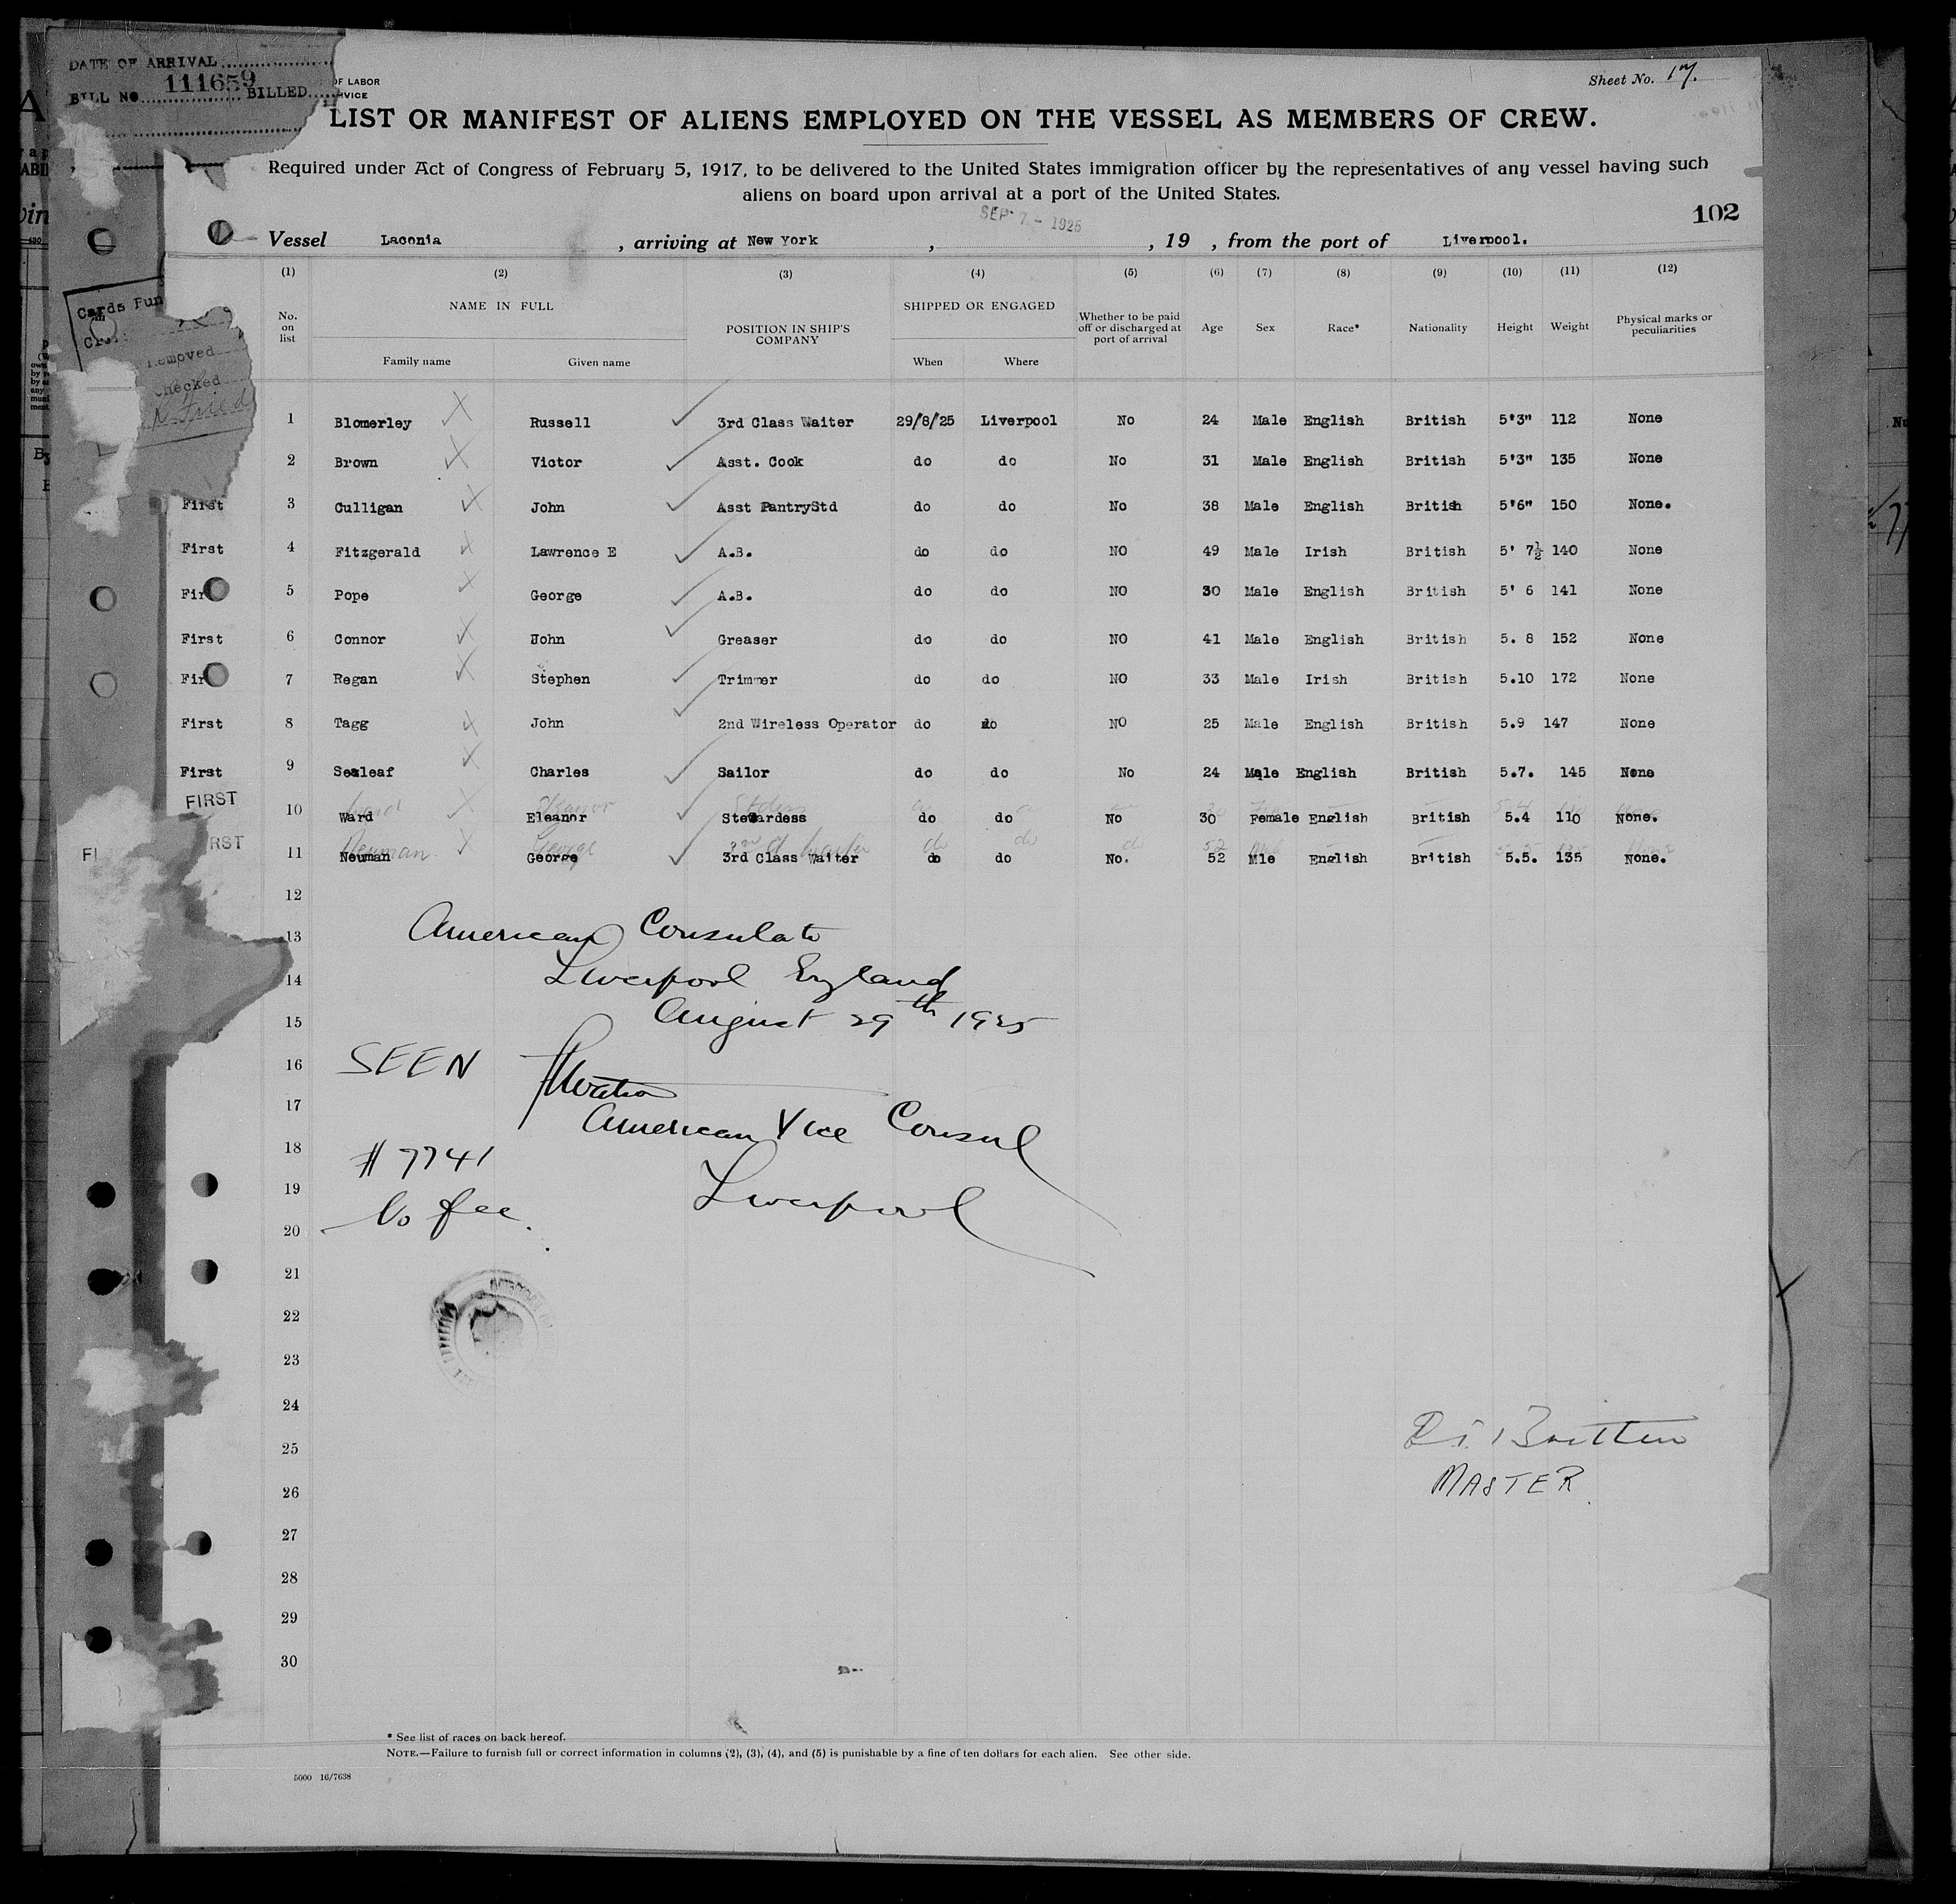 DATE OF ARRIVAL
BILL NO. 111659 BILLED
OF LABOR
RVICE
Sheet No. 17.
LIST OR MANIFEST OF ALIENS EMPLOYED ON THE VESSEL AS MEMBERS OF CREW.
Required under Act of Congress of February 5, 1917, to be delivered to the United States immigration officer by the representatives of any vessel having such
aliens on board upon arrival at a port of the United States.
SEP 7 - 1925
102
Vessel Laconia, arriving at New York, , 19 , from the port of Liverpool.
(1) (2) (3) (4) (5) (6) (7) (8) (9) (10) (11) (12)
No. on list NAME IN FULL Family name Given name POSITION IN SHIP'S COMPANY SHIPPED OR ENGAGED When Where Whether to be paid off or discharged at port of arrival Age Sex Race* Nationality Height Weight Physical marks or peculiarities
Cards Fun
removed
checked
1 Blomerley Russell 3rd Class Waiter 29/8/25 Liverpool No 24 Male English British 5'3" 112 None
2 Brown Victor Asst. Cook do do No 31 Male English British 5'3" 135 None
First 3 Culligan John Asst PantryStd do do No 38 Male English British 5'6" 150 None.
First 4 Fitzgerald Lawrence E A.B. do do NO 49 Male Irish British 5' 7½ 140 None
Fir 5 Pope George A.B. do do NO 30 Male English British 5' 6 141 None
First 6 Connor John Greaser do do NO 41 Male English British 5. 8 152 None
Fir 7 Regan Stephen Trimmer do do NO 33 Male Irish British 5.10 172 None
First 8 Tagg John 2nd Wireless Operator do do NO 25 Male English British 5.9 147 None
First 9 Sealeaf Charles Sailor do do No 24 Male English British 5.7. 145 None
FIRST 10 Ward Eleanor Stewardess do do No 30 Female English British 5.4 110 None.
RST 11 Neuman George 3rd Class Waiter do do No. 52 Mle English British 5.5. 135 None.
12
13 American Consulate
14 Liverpool England
15 August 29th 1925
16 SEEN
17 American Vice Consul
18 # 7741
19 Liverpool
20 No fee.
21
22
23
24
25 Britten
26 MASTER
27
28
29
30
* See list of races on back hereof.
NOTE.—Failure to furnish full or correct information in columns (2), (3), (4), and (5) is punishable by a fine of ten dollars for each alien. See other side.
5000 16/7638